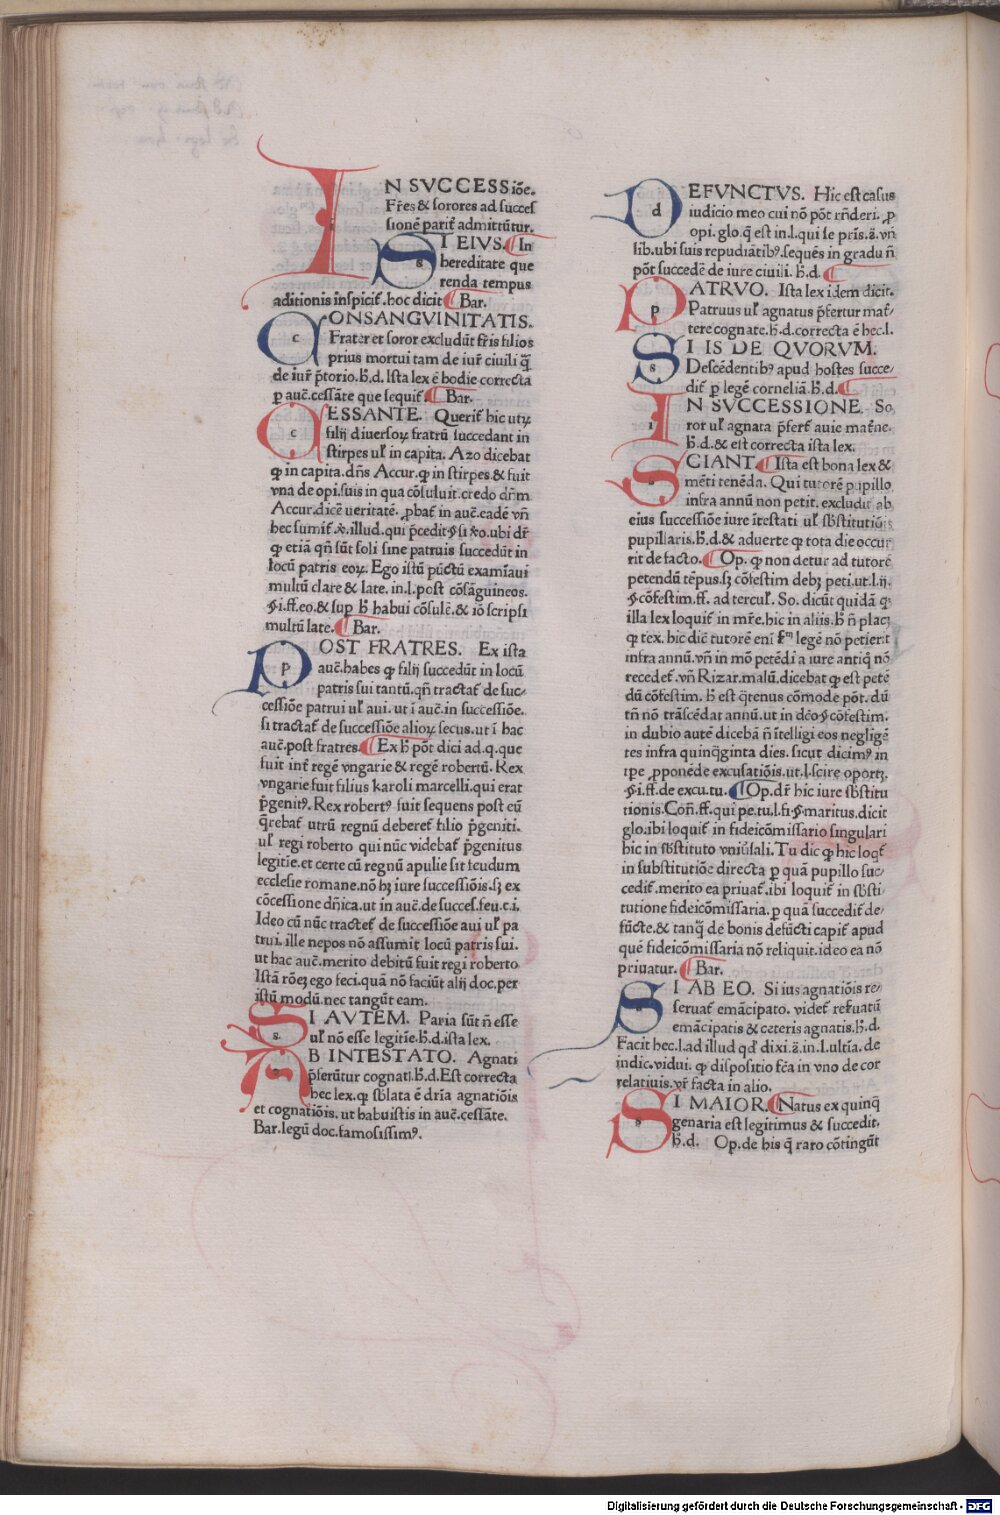 IN SVCCESSiõe.
Fr̄es & sorores ad succes
sionē parit̄ admittūtur.
SI EIVS. In
hereditate que
renda tempus
aditionis inspicit̄. hoc dicit Bar.
CONSANGVINITATIS.
Frater et soror excludūt fr̄is filios
prius mortui tam de iur̄ ciuili q̄
de iur̄ p̄torio. h̄.d. Ista lex ē hodie correcta
ꝑ auc̄. cessāte que sequit̄. Bar.
CESSANTE. Querit̄ hic utꝝ
filij diuersoꝝ fratrū succedant in
stirpes ul̄ in capita. Azo dicebat
ꝙ in capita. dn̄s Accur. ꝙ in stirpes. & fuit
vna de opi. suis in qua cōsuluit. credo dn̄m
Accur. dicē ueritatē. ꝓbat̄ in auc̄. eadē vn̄
hec sumit̄. &c. illud. qui p̄cedit. §. si &co. ubi dr̄
ꝙ etiā qn̄ sūt soli sine patruis succedūt in
locū patris eoꝝ. Ego istū pūctū examīaui
multū clare & late. in. l. post cōsāguineos.
§. i. ff. eo. & sup h̄ habui cōsulē. & iō scripsi
multū late. Bar.
POST FRATRES. Ex ista
auc̄. habes ꝙ filij succedūt in locū
patris sui tantū. qn̄ tractat̄ de suc-
cessiōe patrui ul̄ aui. ut ī auc̄. in successiōe.
si tractat̄ de successiōe alioꝝ secus. ut ī hac
auc̄. post fratres. Ex h̄ pōt dici ad. q. que
fuit int̄ regē vngarie & regē robertū. Rex
vngarie fuit filius karoli marcelli. qui erat
p̄genitꝰ. Rex robertꝰ fuit sequens post eū
q̄rebat̄ utrū regnū deberet̄ filio p̄geniti.
ul̄ regi roberto qui nūc videbat̄ p̄genitus
legitīe. et certe cū regnū apulie sit feudum
ecclesie romane. nō hꝫ iure successiōis. sꝫ ex
cōcessione dn̄ica. ut in auc̄. de succes. feu. c. i.
Ideo cū nūc tractet̄ de successiōe aui ul̄ pa
trui. ille nepos nō assumit locū patris sui.
ut hac auc̄. merito debitū fuit regi roberto
Istā rōeꝫ ego feci. quā nō faciūt alij doc. per
istū modū. nec tangūt eam.
SI AVTEM. Paria sūt n̄ esse
ul̄ nō esse legitīe. h̄.d. ista lex.
AB INTESTATO. Agnati
p̄ferūtur cognati. h̄.d. Est correcta
hec lex. ꝙ sb̄lata ē dr̄ia agnatiōis
et cognatiōis. ut habuistis in auc̄. cessāte.
Bar. legū doc. famosissimꝰ.
DEFVNCTVS. Hic est casus
iudicio meo cui nō pōt rn̄deri. ꝓ
opi. glo. q̄ est in. l. qui se pr̄is. ⁊. vn̄
lib. ubi suis repudiātibꝰ. sequēs in gradu n̄
pōt succedē de iure ciuili. h̄.d.
PATRVO. Ista lex idem dicit.
Patruus ul̄ agnatus p̄fertur mat̄
tere cognate. h̄.d. correcta ē hec. l.
SI IS DE QVORVM.
Descēdentibꝰ apud hostes succe-
dit̄ ꝑ legē corneliā. h̄.d.
IN SVCCESSIONE. So
ror ul̄ agnata p̄fert̄ auie mat̄ne.
h̄.d. & est correcta ista lex.
SCIANT. Ista est bona lex &
mēti tenēda. Qui tutorē pupillo
infra annū non petit. excludit̄ ab
eius successiōe iure ītestati ul̄ sb̄stitutiōis
pupillaris. h̄.d. & aduerte ꝙ tota die occur
rit de facto. Op. ꝙ non detur ad tutorē
petendū tēpus. sꝫ cōfestim debꝫ peti. ut. l. ij.
§. cōfestim. ff. ad tercul̄. So. dicūt quidā ꝙ
illa lex loquit̄ in mr̄e. hic in aliis. h̄ n̄ placꝫ
ꝙ tex. hic dic̄ tutorē eni s̄m legē nō petierīt
infra annū. vn̄ in mō petēdi a iure antiq̄ nō
recedet̄. vn̄ Rizar. malū. dicebat ꝙ est petē
dū cōfestim. h̄ est q̄tenus cōmode pōt. dū
tn̄ nō trāscēdat annū. ut in dc̄o §. cōfestim.
in dubio autē dicebā n̄ ītelligi eos negligē
tes infra quinq̄ginta dies. sicut dicimꝰ in
tp̄e ꝓponēde excusatiōis. ut. l. scire oportꝫ.
§. i. ff. de excu. tu. Op. dr̄ hic iure sb̄stitu
tionis. Con̄. ff. qui pe. tu. l. fi. §. maritus. dicit
glo. ibi loquit̄ in fideicōmissario singulari
hic in sb̄stituto vniūsali. Tu dic ꝙ hic loqt̄
in substitutiōe directa ꝑ quā pupillo suc-
cedit̄. merito ea priuat̄. ibi loquit̄ in sb̄sti-
tutione fideicōmissaria. ꝑ quā succedit̄ de-
fūcte. & tanq̄ de bonis defūcti capit̄ apud
quē fideicōmissaria nō reliquit. ideo ea nō
priuatur. Bar.
SI AB EO. Si ius agnatiōis re-
seruat̄ emācipato. videt̄ ref̄uatū
emācipatis & ceteris agnatis. h̄.d.
Facit hec. l. ad illud qd̄ dixi. ⁊. in. l. ultīa. de
indic. vidui. ꝙ dispositio fc̄a in vno de cor
relatiuis. vr̄ facta in alio.
SI MAIOR. Natus ex quinq̄
genaria est legitimus & succedit.
h̄.d. Op. de his q̄ raro cōtingūt
Digitalisierung gefördert durch die Deutsche Forschungsgemeinschaft - DFG